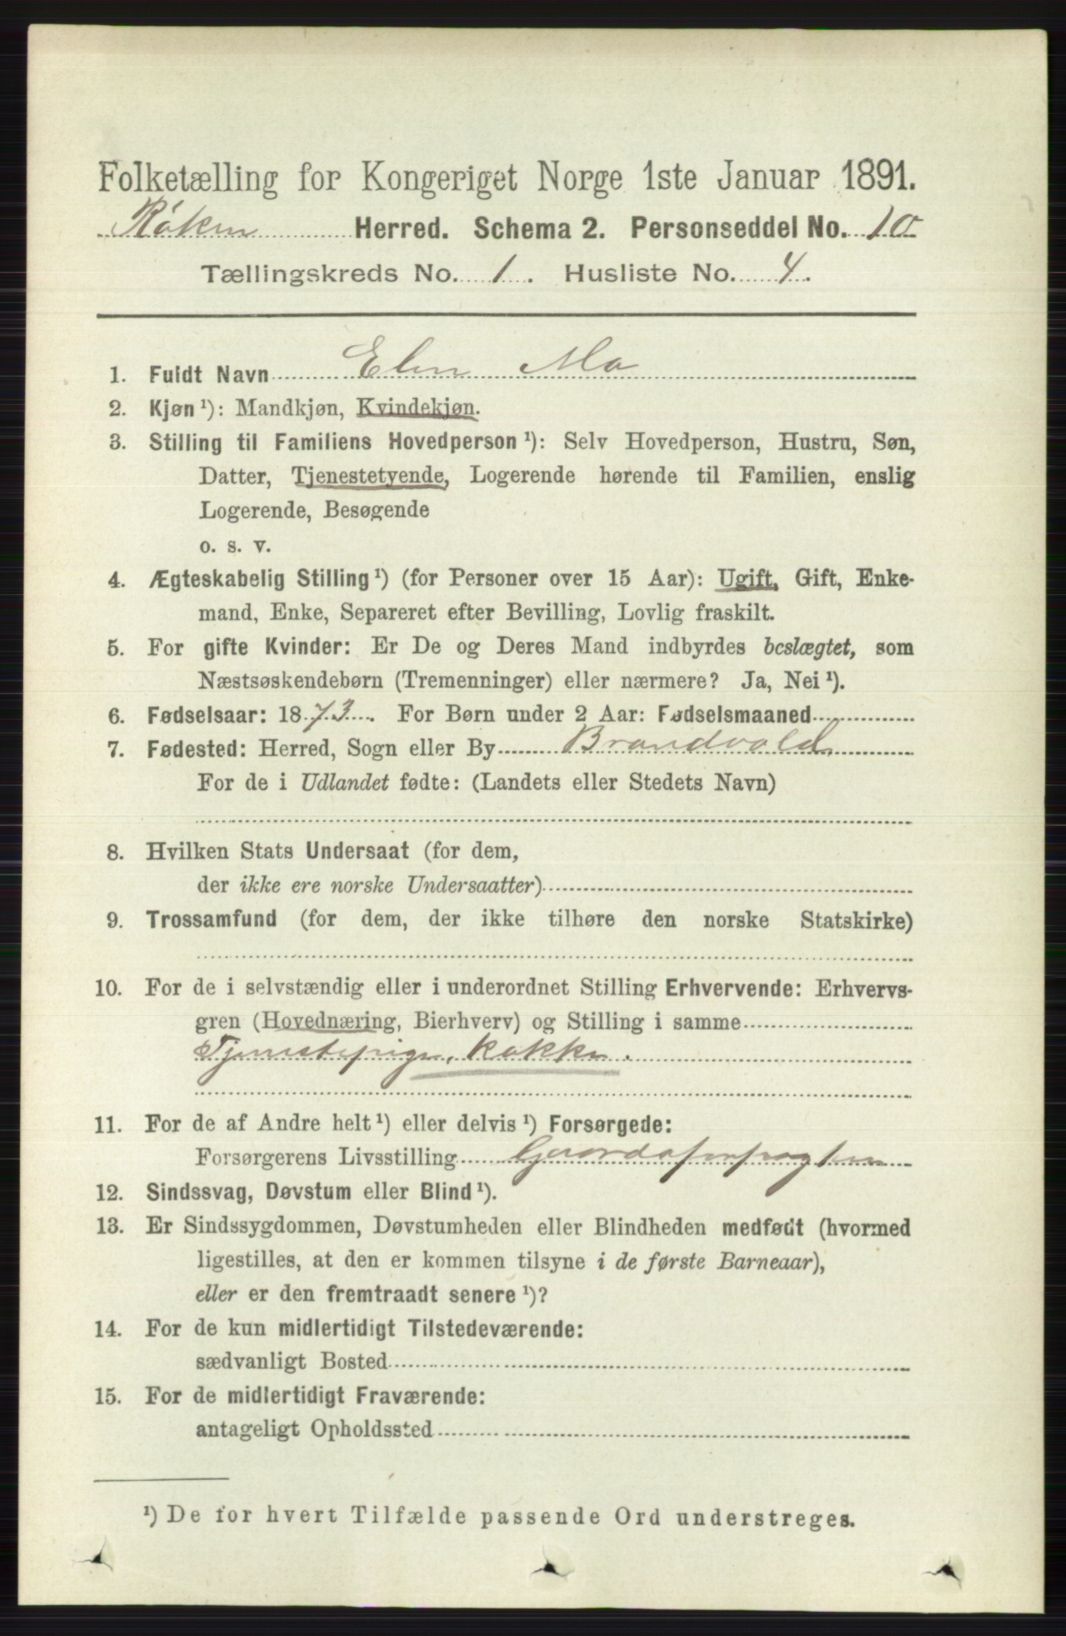 Folketælling for Kongeriget Norge 1ste Januar 1891.
Røken Herred. Schema 2. Personseddel No. 10
Tællingskreds No. 1. Husliste No. 4.
1. Fuldt Navn Elen Mo
2. Kjøn ¹): Mandkjøn, Kvindekjøn.
3. Stilling til Familiens Hovedperson ¹): Selv Hovedperson, Hustru, Søn,
Datter, Tjenestetyende, Logerende hørende til Familien, enslig
Logerende, Besøgende
o. s. v.
4. Ægteskabelig Stilling ¹) (for Personer over 15 Aar): Ugift, Gift, Enke-
mand, Enke, Separeret efter Bevilling, Lovlig fraskilt.
5. For gifte Kvinder: Er De og Deres Mand indbyrdes beslægtet, som
Næstsøskendebørn (Tremenninger) eller nærmere? Ja, Nei ¹).
6. Fødselsaar: 1873. For Børn under 2 Aar: Fødselsmaaned
7. Fødested: Herred, Sogn eller By Brandvold
For de i Udlandet fødte: (Landets eller Stedets Navn)
8. Hvilken Stats Undersaat (for dem,
der ikke ere norske Undersaatter)
9. Trossamfund (for dem, der ikke tilhøre den norske Statskirke)
10. For de i selvstændig eller i underordnet Stilling Erhvervende: Erhvervs-
gren (Hovednæring, Bierhverv) og Stilling i samme
Tjenestepige, kokke.
11. For de af Andre helt ¹) eller delvis ¹) Forsørgede:
Forsørgerens Livsstilling Gaardsforpagter
12. Sindssvag, Døvstum eller Blind ¹).
13. Er Sindssygdommen, Døvstumheden eller Blindheden medfødt (hvormed
ligestilles, at den er kommen tilsyne i de første Barneaar),
eller er den fremtraadt senere ¹)?
14. For de kun midlertidigt Tilstedeværende:
sædvanligt Bosted
15. For de midlertidigt Fraværende:
antageligt Opholdssted
¹) De for hvert Tilfælde passende Ord understreges.